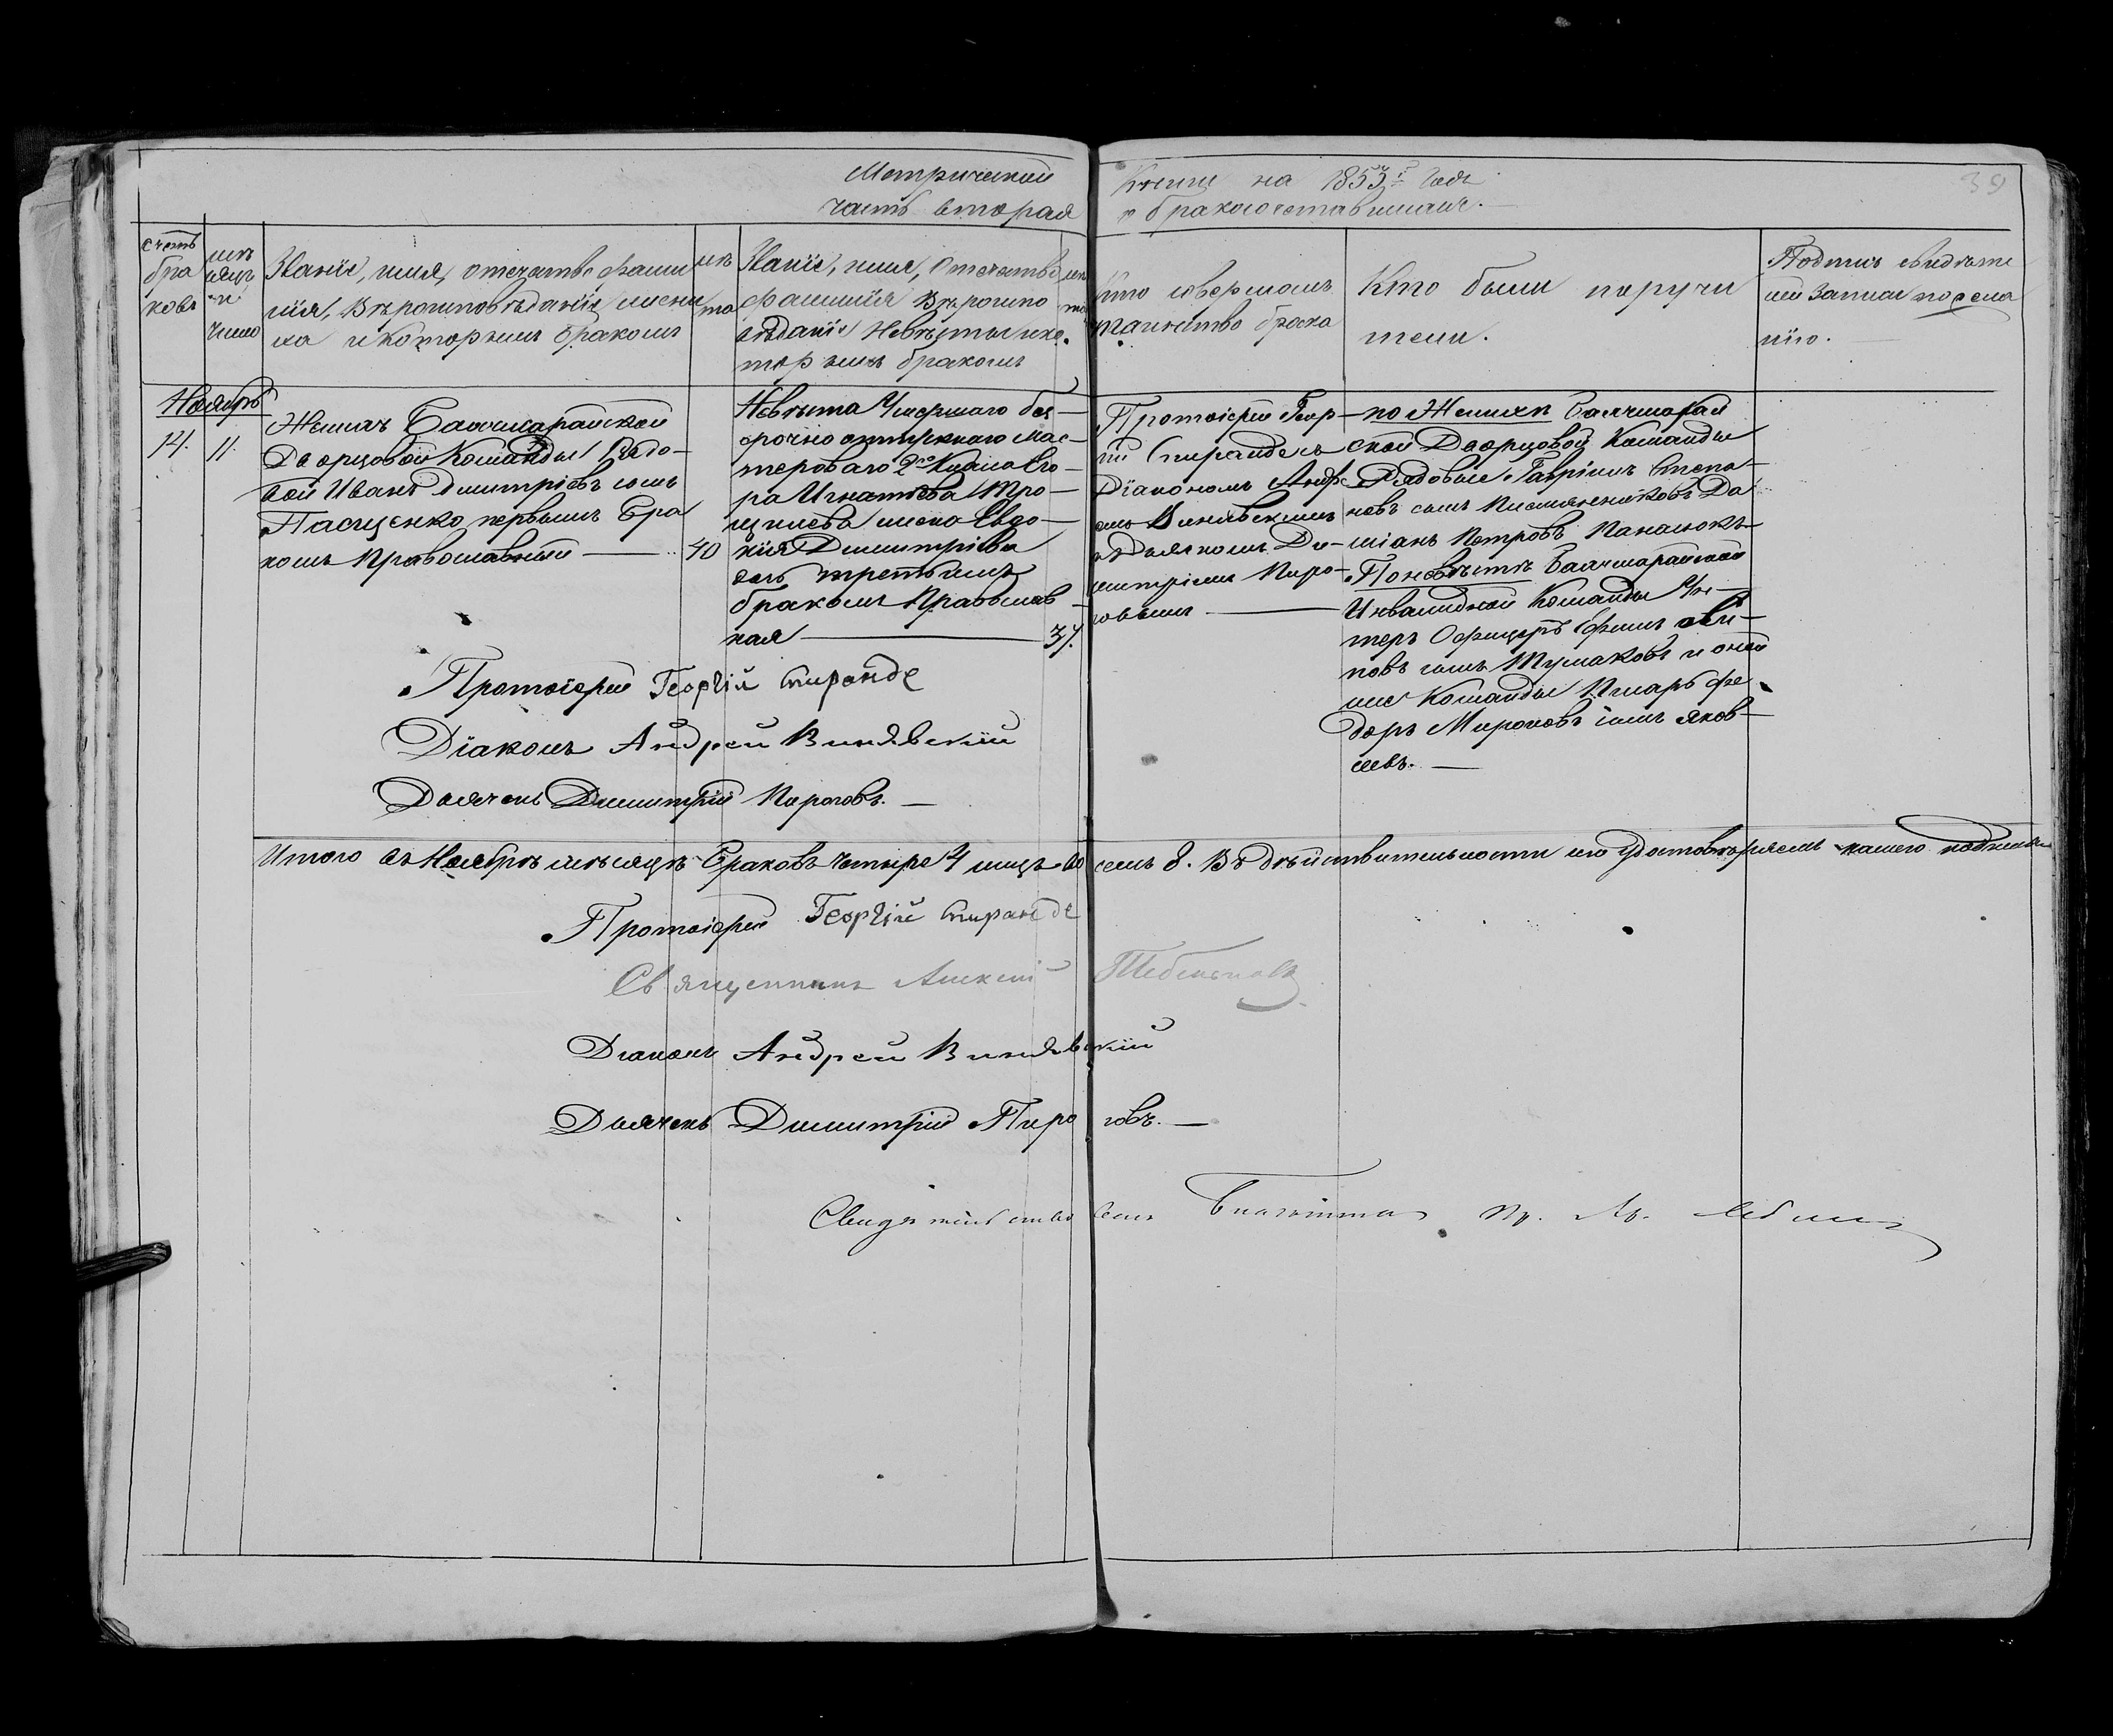 Метрической Книги на 1853й Годъ
часть вторая о бракосочетавшихся.
39
Счетъ браковъ
мѣсяцъ и число
Званіе, имя, отечество фами
лія, Вѣроисповѣданіе жени
ха и которымъ бракомъ
лѣта
Званіе, имя, отечество
фамилія Вѣроиспо
вѣданіе Невѣсты и ко
торымъ бракомъ
лѣта
Кто совершалъ
таинство брака
Кто были поручи
тели.
Подпись свидѣте
лей записи по жела
нію.
Ноябрь
14. 11.
Женихъ Бахчисарайской
Дворцовой Команды Рядо-
вой Иванъ Дмитріевъ сынъ
Пащенко первымъ бра
комъ Православный — 40
Невѣста Умершаго без-
срочно отпускного Мас-
терового 2го Класса Его-
ра Игнатьева
жена Евдо-
кія Димитріева
дочь третьимъ
бракомъ Православ-
ная — 37.
Протоіерей Геор-
гій Спиранде съ
Діакономъ Андре-
емъ Винявскимъ
и Дьячкомъ Ди-
митріемъ Пиро-
говымъ —
по Женихѣ Бахчисарай
ской Дворцовой Команды
Рядовые Гавріилъ Степа-
новъ сынъ Письменниковъ Да
міанъ Петровъ Панасюкъ
По невѣстѣ Бахчисарайской
Инвалидной Команды Ун-
теръ Офицеръ
повъ сынъ Тумаковъ и оной
же Команды Писарь Фе
доръ Мироновъ сынъ Яков-
левъ. —
Протоіерей Георгій Спиранде
Діаконъ Андрей Винявскій
Дьячекъ Димитрій Пироговъ. —
Итого въ Ноябрѣ мѣсяцѣ браковъ четыре 4 лицъ во семь 8. Въ дѣйствительности сего удостовѣряемъ нашею подписью
Протоіерей Георгій Спиранде
Священникъ Алексій
Діаконъ Андрей Винявскій
Дьячекъ Димитрій Пироговъ. —
Свидѣтельствовалъ Благочинный